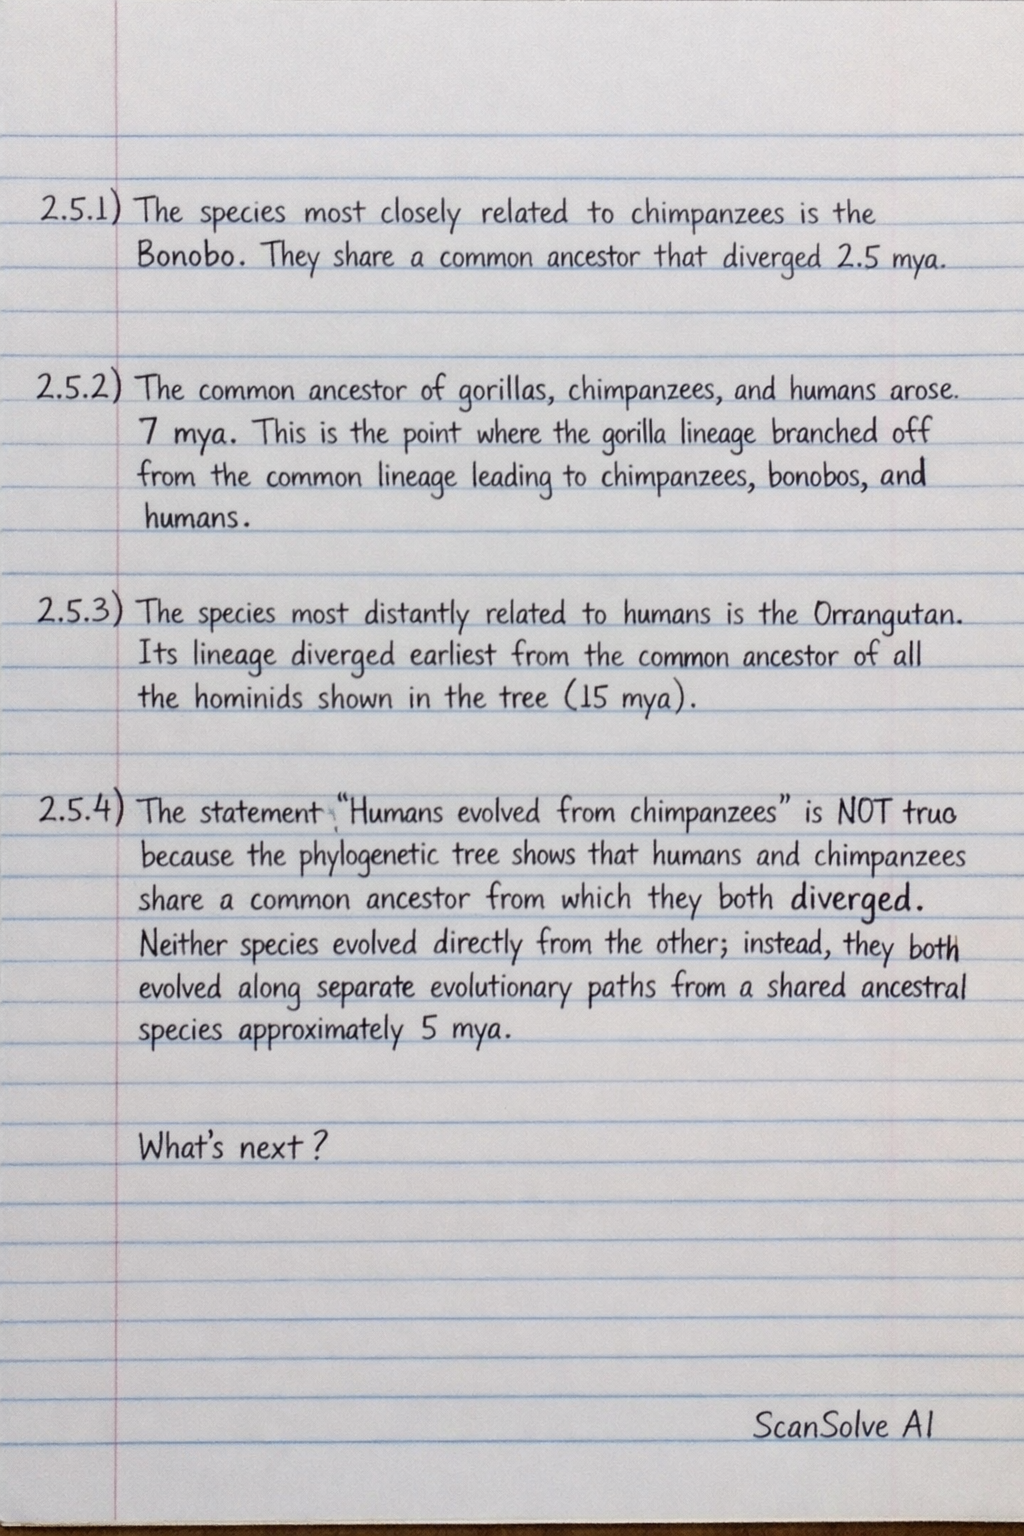 2.5.1) The species most closely related to chimpanzees is the
Bonobo. They share a common ancestor that diverged 2.5 mya.
2.5.2) The common ancestor of gorillas, chimpanzees, and humans arose.
7 mya. This is the point where the gorilla lineage branched off
from the common lineage leading to chimpanzees, bonobos, and
humans.
2.5.3) The species most distantly related to humans is the Orrangutan.
Its lineage diverged earliest from the common ancestor of all
the hominids shown in the tree (15 mya).
2.5.4) The statement "Humans evolved from chimpanzees" is NOT truo
because the phylogenetic tree shows that humans and chimpanzees
share a common ancestor from which they both diverged.
Neither species evolved directly from the other; instead, they both
evolved along separate evolutionary paths from a shared ancestral
species approximately 5 mya.
What's next?
ScanSolve AI